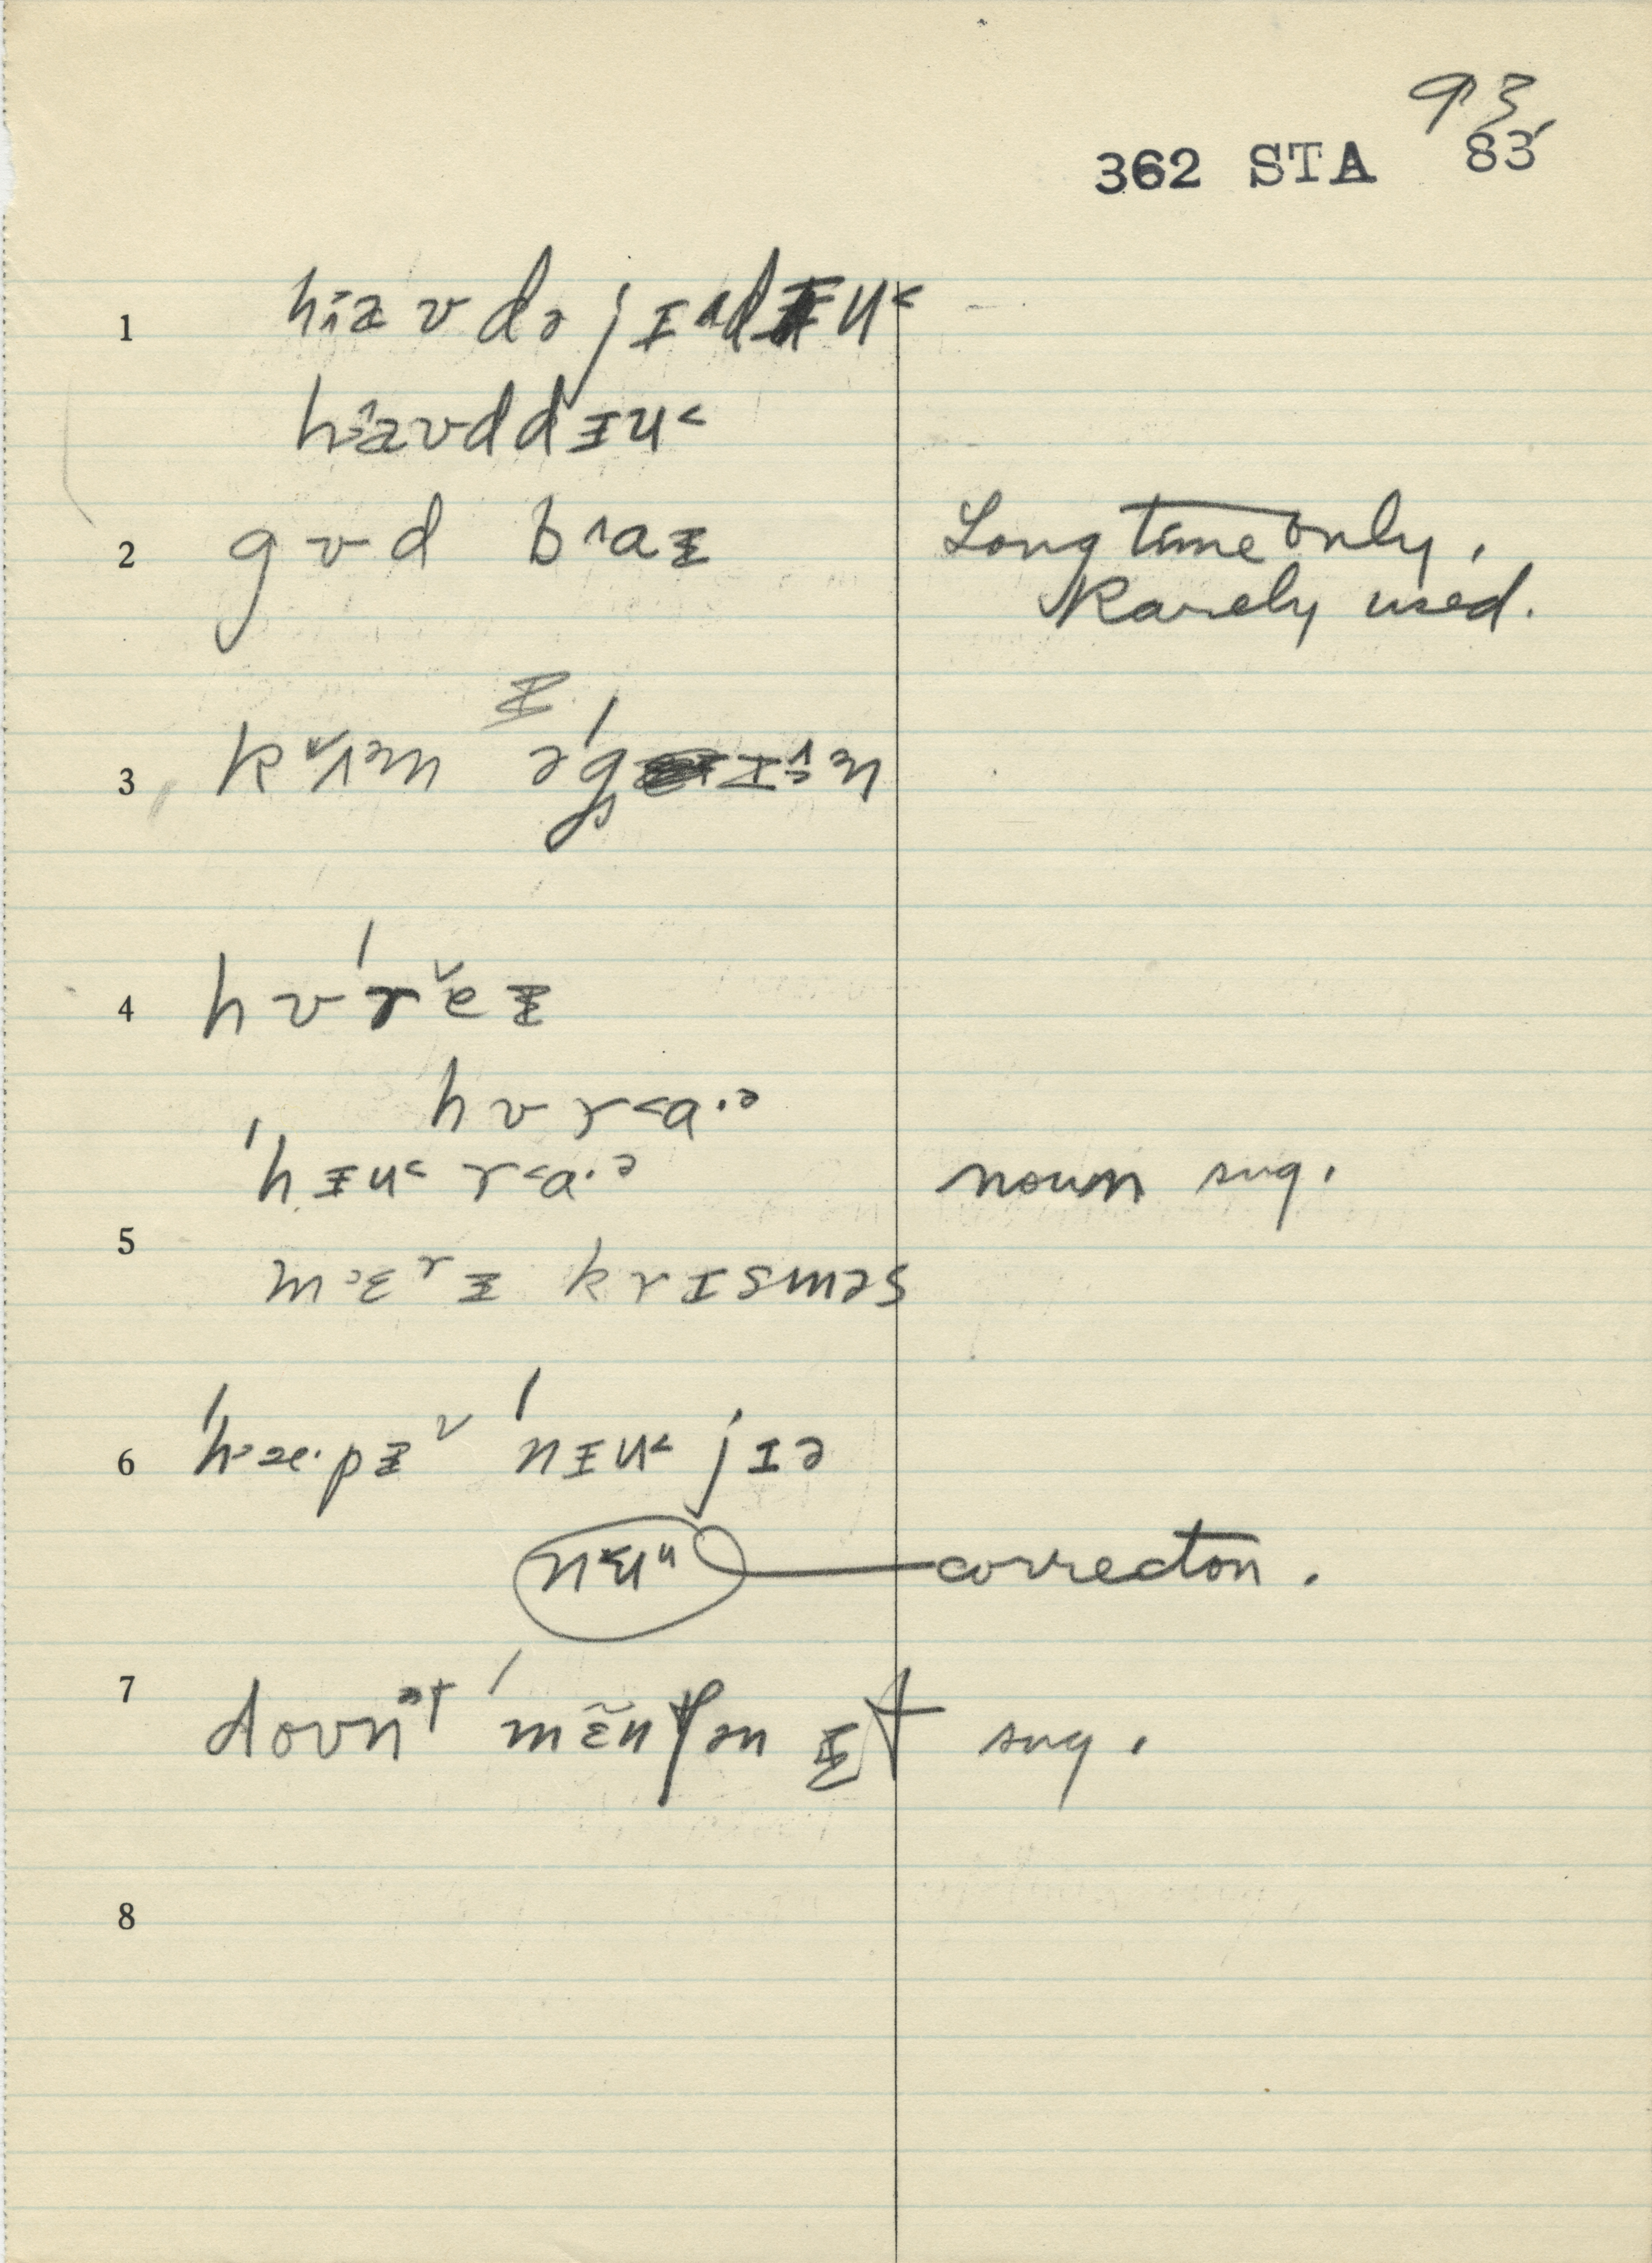 93
362 STA 83
1 hɪæʊ də jɪ ʌdɨu˂
hɪæʊddɨu˂
2 gʊd bʌaɨ Long time only.
Rarely used.
ɨ
3 kʌm əˈgɪˑən
4 hʊˈreɨ
hʊr˂a·ə
ˈhɨu˂r˂a·ə noun sug.
5
mɛrɨ krɪsməs
6 ˈhæ·pɨ ˈnɨu˂ jɪə
nɨu correcton.
7 doʊnət ˈmɛ̃nʧən ɨt sug.
8